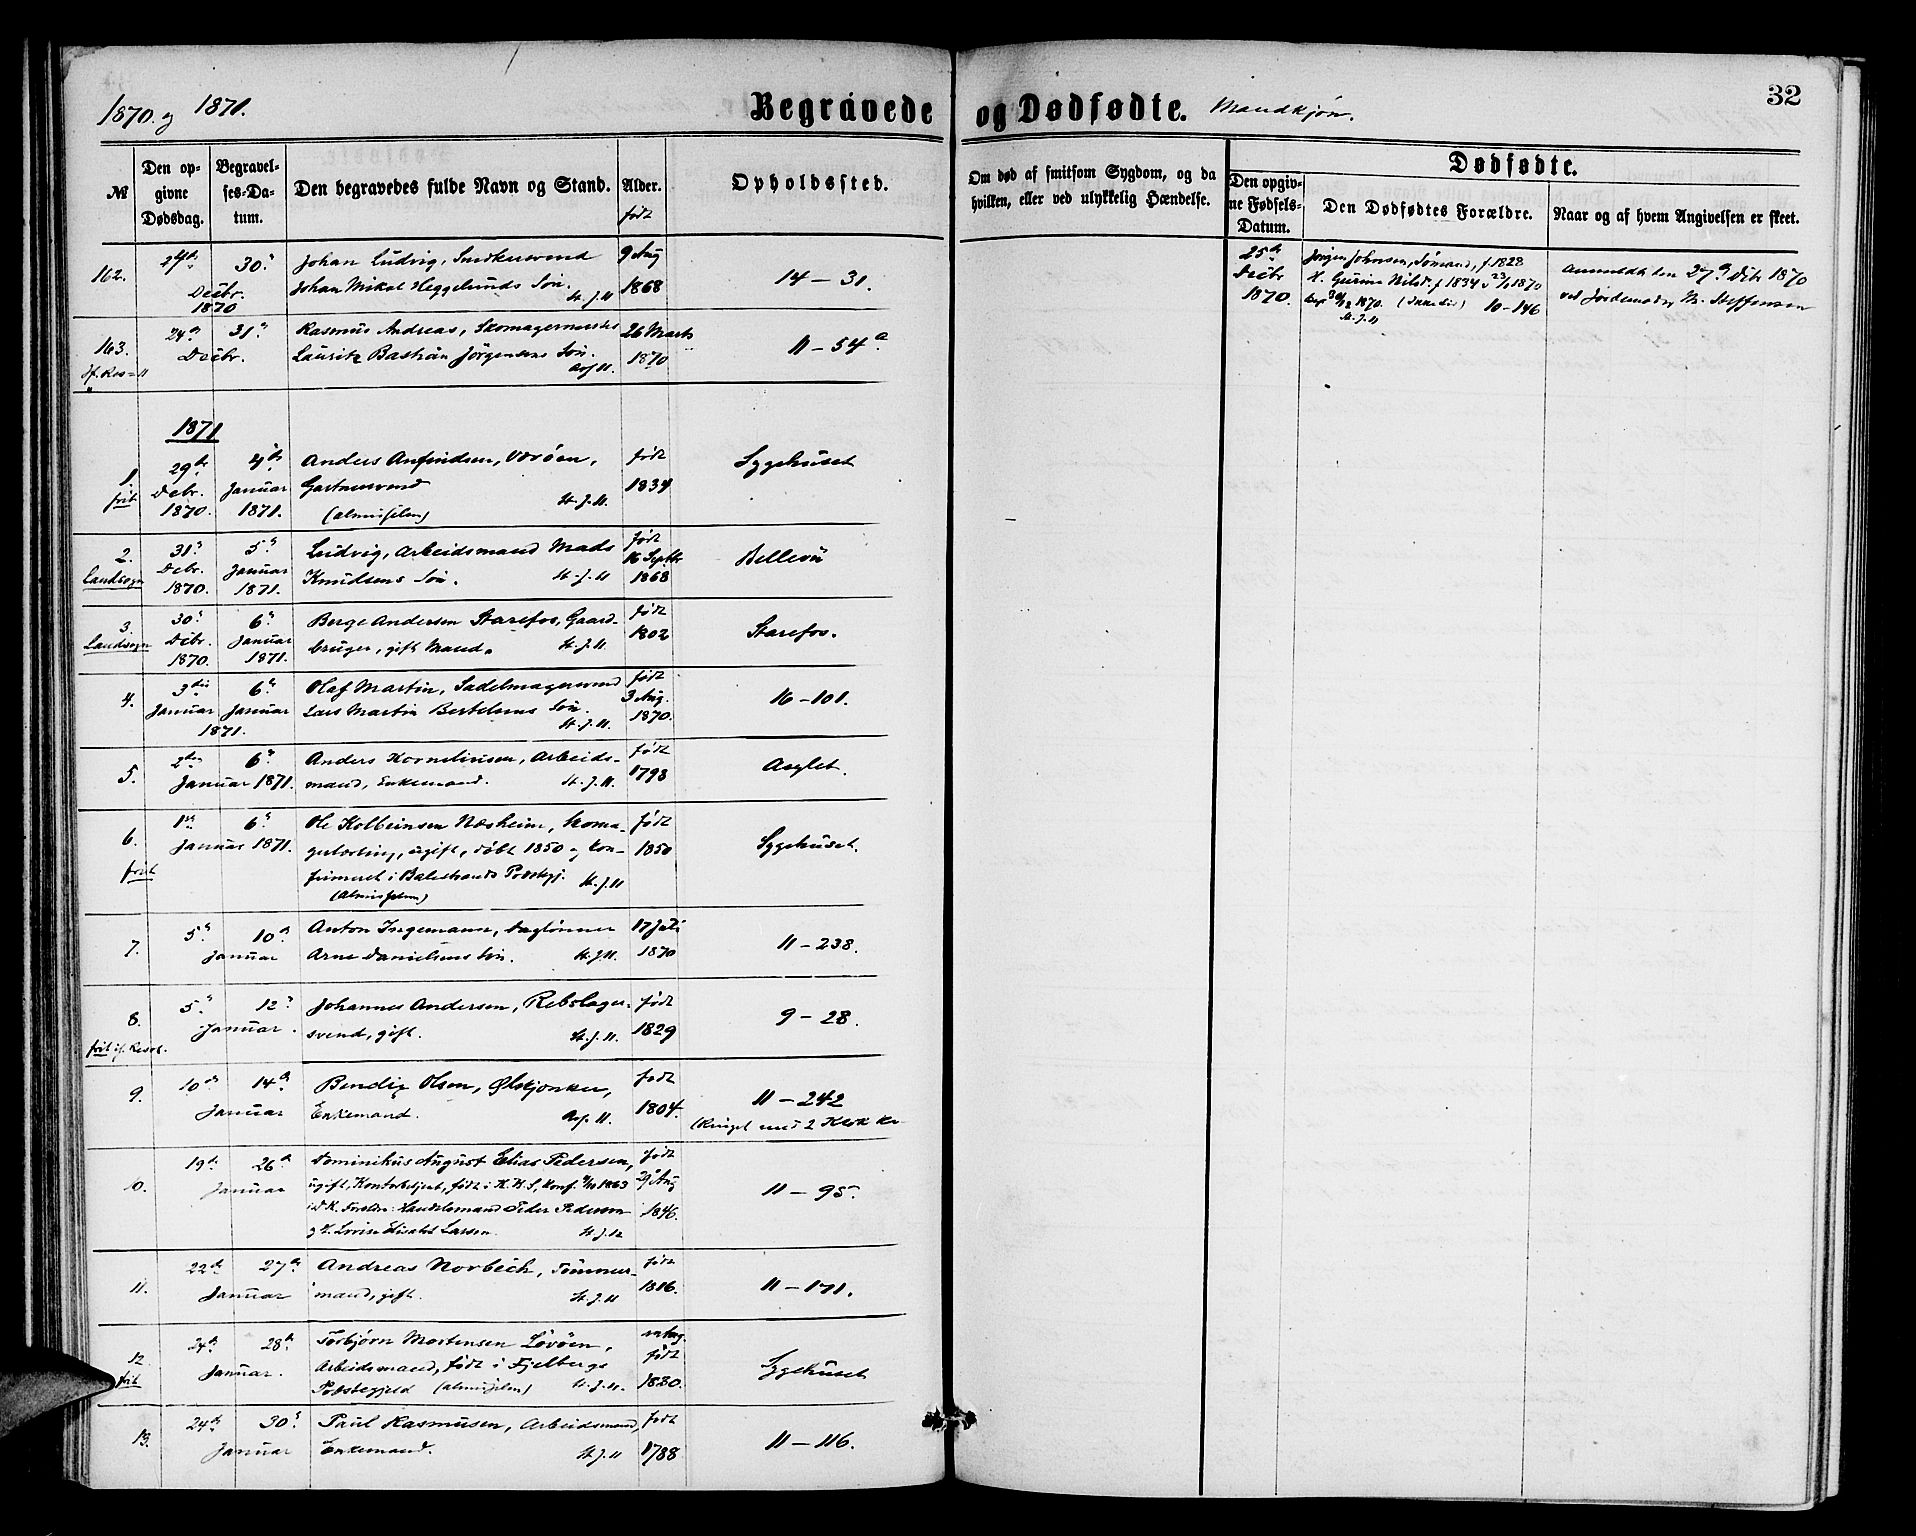 1870. og 1871.
Begravede og Dødfødte. Mandkjøn.
32
№
Den opgivne Dødsdag.
Begravelses-Datum.
Den begravedes fulde Navn og Stand.
Alder.
født
Opholdssted.
Om død af smitsom Sygdom, og da hvilken, eller ved ulykkelig Hændelse.
Dødfødte.
Den opgivne Fødsels-Datum.
Den Dødfødtes Forældre.
Naar og af hvem Angivelsen er skeet.
162.
30.
Decbr.
1870
Johan Ludvig, Snedkersvend
Johan Mikal Heggelunds Søn.
St. J. 11
9 Aug
1868
14 – 31.
25de
Decbr
1870.
Jørgen Johnsen, Sømand, f. 1828
H. Gurine Nilsd. f 1834
10-146
anmeldt den 27de Dcbr 1870
ved Jordemoder M. Steffensen
163.
24de
Decbr.
31te
Rasmus Andreas, Skomagermester
Lauritz Bastian Jörgensens Søn.
26 Marts
1870
11 – 54 a
1871
1.
frit
29de
Dcbr.
1870.
4de
Januar
1871.
Anders Anfindsen, Værøen,
Gartnersvend
St. J. 11.
(almisselem)
født
1834
Sygehuset
2.
Landsogn
31te
Dcbr.
1870.
5te
Januar
1871.
Ludvig, Arbeidsmand Mads
Knudsens Søn.
St. J. 11
født
16 Septbr
1868
Bellevü
3.
Landsogn
30te
Dcbr.
1870.
6te
Januar
1871.
Berge Andersen Starefos, Gaard-
bruger, gift Mand.
St. J. 11.
født
1802
Starefos.
4.
3die
Januar
6te
Januar
1871.
Olaf Martin, Sadelmagersvend
Lars Martin Bertelsens Søn.
St. J. 11.
født
3 Aug.
1870.
16 – 101.
5.
2den
6te
Januar 1871.
Anders Kornelinsen, Arbeids-
mand, Enkemand.
St. J. 11.
født
1793
Asylet.
6.
frit
1ste
6te
Januar 1871.
Ole Kolbeinsen Næsheim, Skoma-
gerlærling, ugift, døbt 1850 og kon-
firmeret i Balestrands Pdstgj.
St. J. 11
(Almisselem)
født
1850
Sygehuset.
7.
5te
10de
Januar
Anton Ingemann, Dagløнner
Arne Danielsens Søn.
St. J. 11.
17 Juli
1870
11 – 238.
8.
frit if. Resol.
5te
12te
Januar.
Johannes Andersen, Rebslager-
svend, gift.
St. J. 11.
født
1829
9 – 28.
9.
10de
14de
Januar
Bendix Olsen, Ølskjænker,
Enkemand.
født
1804.
11 – 242
10.
19de
26de
Januar
Dominikus August Elias Pedersen,
ugift, Kontorbetjent, født i
Handelsmand Peder Pedersen
og H. Lovise Elisabet Larsen.
St. J. 12
født
29 Aug
1846.
11 – 95.
11.
22de
27de
Januar
Andreas Norbech, Tømmer-
mand, gift.
St. J. 11
født
1816.
11 – 171.
12.
frit
24de
28de
Januar.
Torbjørn Mortensen Løvøen,
Arbeidsmand, født i Fjelbergs
Præstegjeld (almisselem)
St. J. 11.
født
1830.
Sygehuset
13.
24de
30te
Januar
Paul Rasmusen, Arbeidsmand,
Enkemand.
St. J. 11
født
1788
11 – 116.